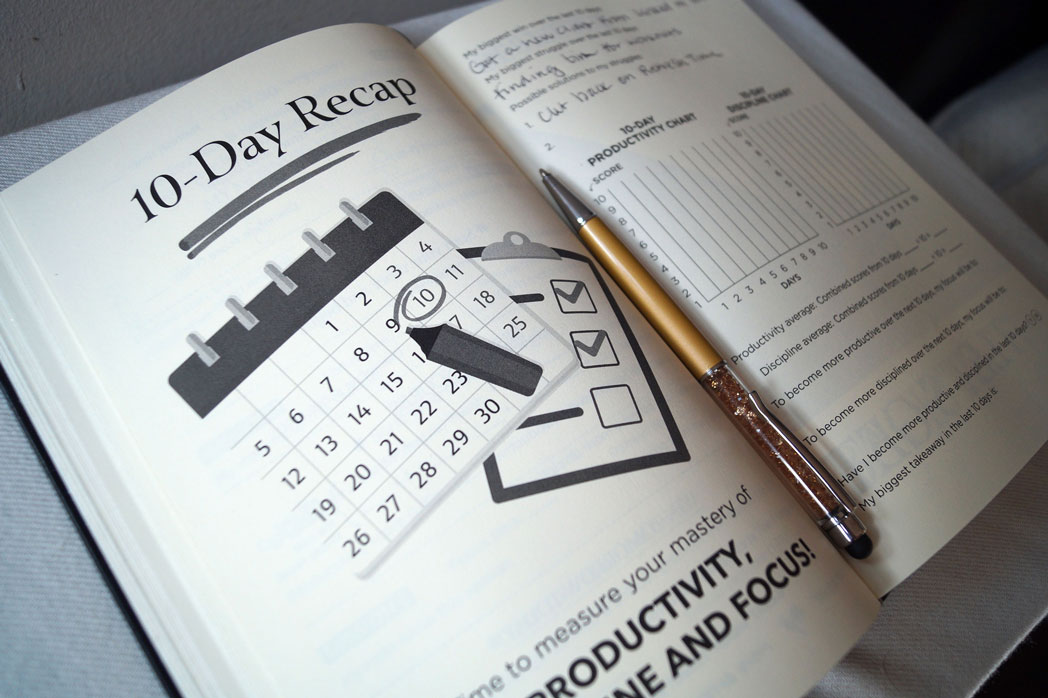 10-Day Recap
1 2 3 4
5 6 7 8 9 10 11
12 13 14 15 1 7 18
19 20 21 22 23 25
26 27 28 29 30
me to measure your mastery of
PRODUCTIVITY,
NE AND FOCUS!
My biggest win over the last 10 days
Got a new from
My biggest struggle over the last 10 days
Finding time for
Possible solutions to my struggles
1. Cut back on Time
2.
10-DAY
PRODUCTIVITY CHART
SCORE
10
9
8
7
6
5
4
3
2
1
1 2 3 4 5 6 7 8 9 10
DAYS
10-DAY
DISCIPLINE CHART
SCORE
10
9
8
7
6
5
4
3
2
1
1 2 3 4 5 6 7 8 9 10
DAYS
Productivity average: Combined scores from 10 days ____ ÷ 10 = ____
Discipline average: Combined scores from 10 days ____ ÷ 10 = ____
To become more productive over the next 10 days, my focus will be:
To become more disciplined over the next 10 days, my focus will be:
Have I become more productive and disciplined in the last 10 days?
My biggest takeaway in the last 10 days is: